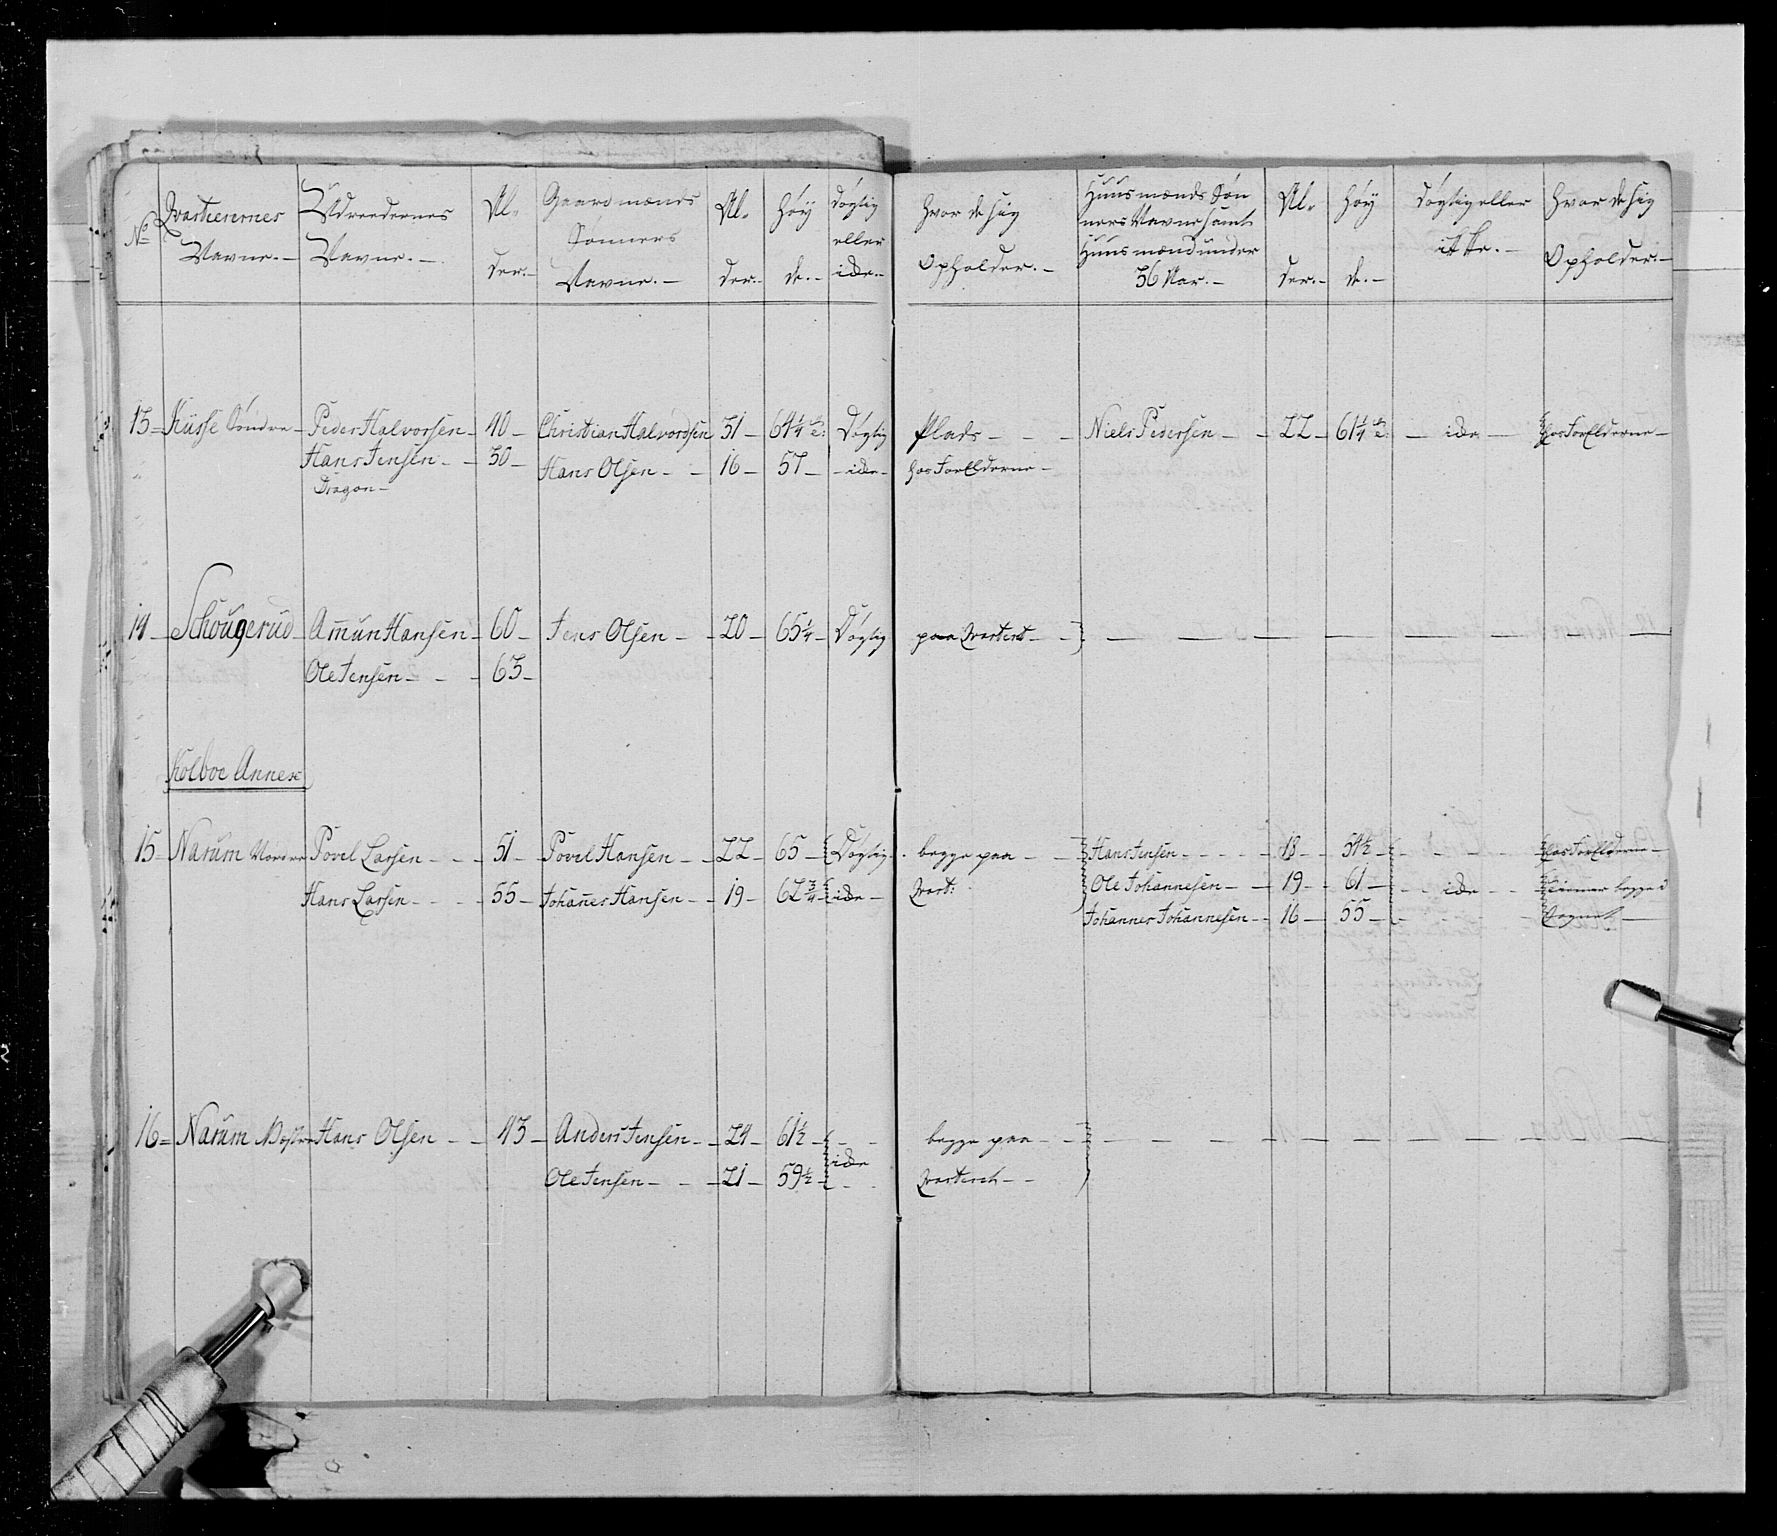 No
Qvarterernes Navne.
Udreedernes Navne.
Al-der.
Gaardmænds Sønners Navne.
Al-der.
Høy de.
Døgtig eller ikke.
Hvor de sig Opholder.
Huusmænds Søn
ners Navne samt
Huusmænd under
36 Aar.
Al-der.
Høy de.
Døgtig eller ikke.
Hvor de sig Opholder.
13 Küsse Søndre Peder Halvorsen 40 Christian Halvordsen 31 64 1/4 Døgtig Plads Niels Pedersen 22 61 1/4 ikke hos Forældrerne
Hans Jensen 30 Hans Olsen 16 57 ikke hos Forældrerne
Dragon
14 Schougerud Amun Hansen 60 Jens Olsen 20 65 1/4 Døgtig paa Qvarteret
Ole Jensen 63
Kolboe Annex
15 Narum Nordre Povel Larsen 51 Povel Hansen 22 65 Døgtig begge paa Hans Jensen 18 54 1/2 hos Forældrerne
Hans Larsen 55 Johanes Hansen 19 62 3/4 ikke Qvart: Ole Johannesen 19 61 ikke tiener begge i
Johannes Johannesen 16 55 Sognet
16 Narum Hans Olsen 43 Anders Jensen 24 61 1/2 begge paa
ikke
Ole Jensen 21 59 1/2 Qvarteret